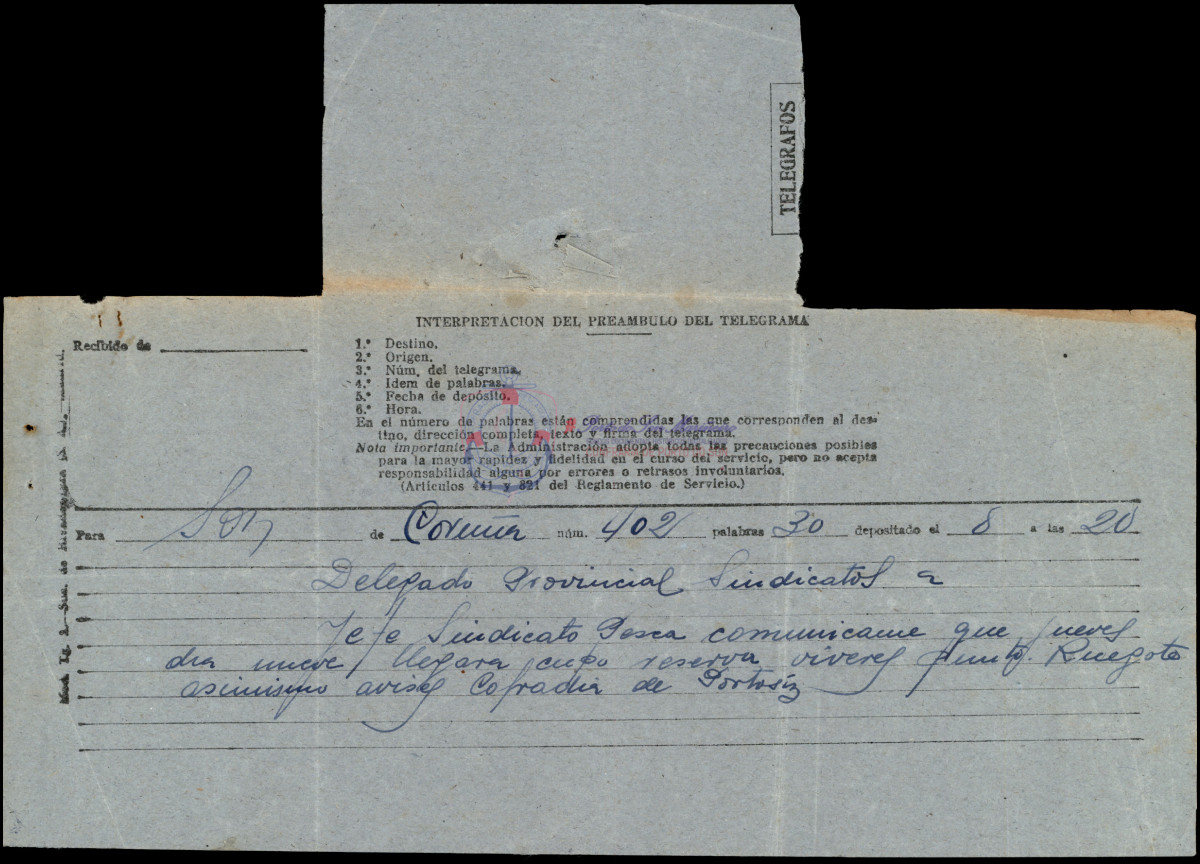 TELEGRAFOS
INTERPRETACION DEL PREAMBULO DEL TELEGRAMA
Recibido de
1.º Destino.
2.º Origen.
3.º Núm. del telegrama.
4.º Idem de palabras.
5.º Fecha de depósito.
6.º Hora.
En el número de palabras están comprendidas las que corresponden al des-
tino, dirección completa, texto y firma del telegrama.
Nota importante.—La Administración adopta todas las precauciones posibles
para la mayor rapidez y fidelidad en el curso del servicio, pero no acepta
responsabilidad alguna por errores o retrasos involuntarios.
(Artículos 441 y 821 del Reglamento de Servicio.)
Para Son de Coruña núm. 402 palabras 30 depositado el 8 a las 20
Delegado Provincial Sindicatos a
Jefe Sindicato Pesca comunicame que jueves
dia nueve llegara cupo reserva viveres punto. Ruegote
asimismo avises Cofradia de Portosin